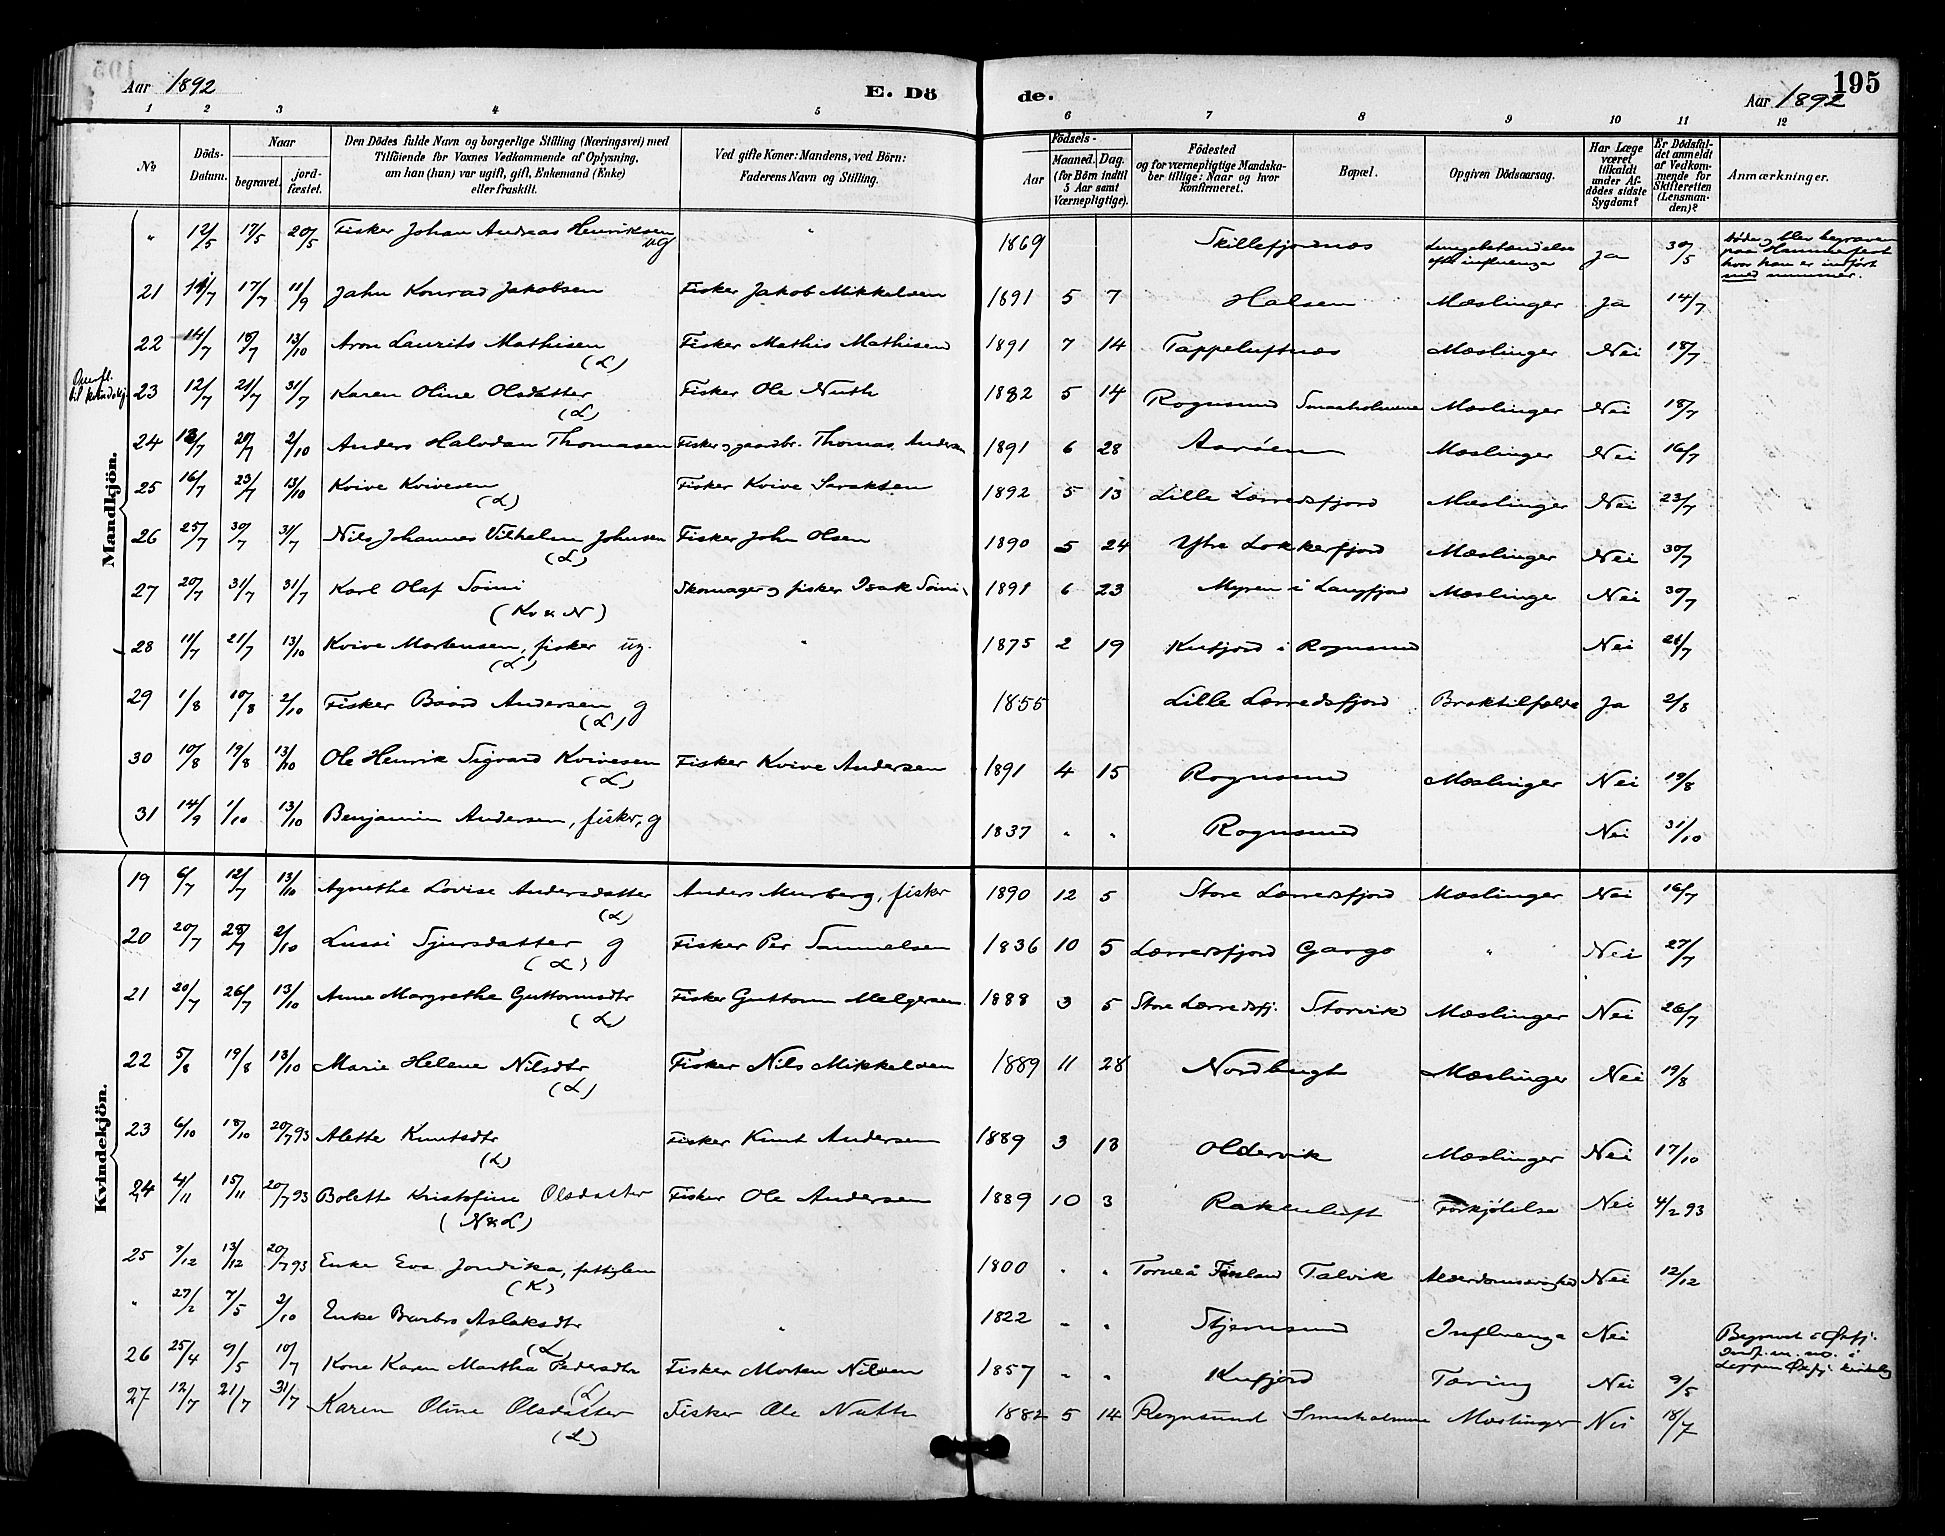 Aar 1892 E. Dö de. Aar 1892 195
1 2 3 4 5 6 7 8 9 10 11 12
No Döds-Datum. Naar begravet. jordfæstet. Den Dödes fulde Navn og borgerlige Stilling (Næringsvei) med Tilföiende for Voxnes Vedkommende af Oplysning, om han (hun) var ugift, gift, Enkemand (Enke) eller fraskilt. Ved gifte Koner: Mandens, ved Börn: Faderens Navn og Stilling. Födsels- Aar Maaned. Dag. (for Börn indtil 5 Aar samt Værnepligtige). Födested og for værnepligtige Mandskaber tillige: Naar og hvor Konfirmeret. Bopæl. Opgiven Dödsaarsag. Har Læge været tilkaldt under Afdödes sidste Sygdom? Er Dödsfaldet anmeldt af Vedkommende for Skifteretten (Lensmanden)? Anmærkninger.
Mandkjön.
" 12/5 17/5 20/5 Fisker Johan Andreas Henriksen ug " 1869 Skillefjordnæs Lungebetændelse efter influenza Ja 30/5 Döde og blev begraven paa Hammerfest hvor han er indfört med nummer.
21 14/7 17/7 11/9 John Konrad Jakobsen Fisker Jakob Mikkelsen 1891 5 7 Halsen Mæslinger Ja 14/7
22 14/7 18/7 13/10 Aron Laurits Mathisen (L) Fisker Mathis Mathisen 1891 7 14 Tappeluftnæs Mæslinger Nei 18/7
Overfl. til kvindekj. 23 12/7 21/7 31/7 Karen Oline Olsdatter (L) Fisker Ole Nuth 1882 5 14 Rognsund Smaaholmene Mæslinger Nei 18/7
24 12/7 20/7 2/10 Anders Halvdan Thomasen Fisker og gaardbr. Thomas Andersen 1891 6 28 Aaröen Mæslinger Nei 16/7
25 16/7 23/7 13/10 Kvive Kvivesen (L) Fisker Kvive Saraksen 1892 5 13 Lille Lerredsfjord Mæslinger Nei 23/7
26 25/7 30/7 31/7 Nils Johannes Vilhelm Johnsen (L) Fisker John Olsen 1890 5 24 Ytre Lokkerfjord Mæslinger Nei 30/7
27 20/7 31/7 31/7 Karl Olaf Soini (Kv & N) Skomager og fisker Isak Soini 1891 6 23 Myren i Langfjord Mæslinge Nei 30/7
28 11/7 21/7 13/10 Kvive Mortensen, fisker ug. (L) " 1875 2 19 Kufjord i Rognsund Nei 21/7
29 1/8 10/8 2/10 Fisker Baard Andersen g (L) 1855 Lille Lerredsfjord Broktilfælde Ja 2/8
30 10/8 19/8 13/10 Ole Henrik Sigvard Kvivesen (L) Fisker Kvive Andersen 1891 4 15 Rognsund Mæslinger Nei 19/8
31 14/9 1/10 13/10 Benjamin Andersen, fisker, g 1837 " " Rognsund Nei 31/10
Kvindekjön.
19 6/7 12/7 13/10 Agnethe Lovise Andersdatter (L) Anders Murberg, fisker 1890 12 5 Store Lerredsfjord Mæslinger Nei 16/7
20 20/7 28/7 2/10 Lussi Sjursdatter g (L) Fisker Per Samuelsen 1836 10 5 Lerredsfjord Gargo " Nei 27/7
21 20/7 26/7 13/10 Anne Margrethe Guttormsdtr (L) Fisker Guttorm Melgersen 1888 3 5 Store Lerredsfj. Storvik Mæslinger Nei 26/7
22 5/8 19/8 13/10 Marie Helene Nilsdtr (L) Fisker Nils Mikkelsen 1889 11 28 Nordbugt Mæslinger Nei 19/8
23 6/10 18/10 20/7 93 Alette Knutsdtr (L) Fisker Knut Andersen 1889 3 13 Oldervik Mæslinger Nei 17/10
24 4/11 15/11 20/7 93 Bolette Kristofine Olsdatter (N & L) Fisker Ole Andersen 1889 10 3 Rakenluft Forkjölelse Nei 4/2 93
25 9/12 13/12 20/7 93 Enke Eva Jondika, fattiglem (K) 1800 " " Torneå Finland Talvik Alderdomssvaghed Nei 12/12
" 27/2 7/5 2/10 Enke Barbro Aslaksdtr (L) " 1822 " " Stjernsund Influenza Nei Begravet i Öxfj. Indf. m. no. i Loppen Öxfj. kirkebog
26 25/4 9/5 10/7 Kone Karen Martha Pedersdtr (L) Fisker Morten Nilsen 1857 " " Kufjord Tæring Nei 9/5
27 12/7 21/7 31/7 Karen Oline Olsdatter (L) Fisker Ole Nuth 1882 5 14 Rognsund Smaaholmene Mæslinger Nei 18/7